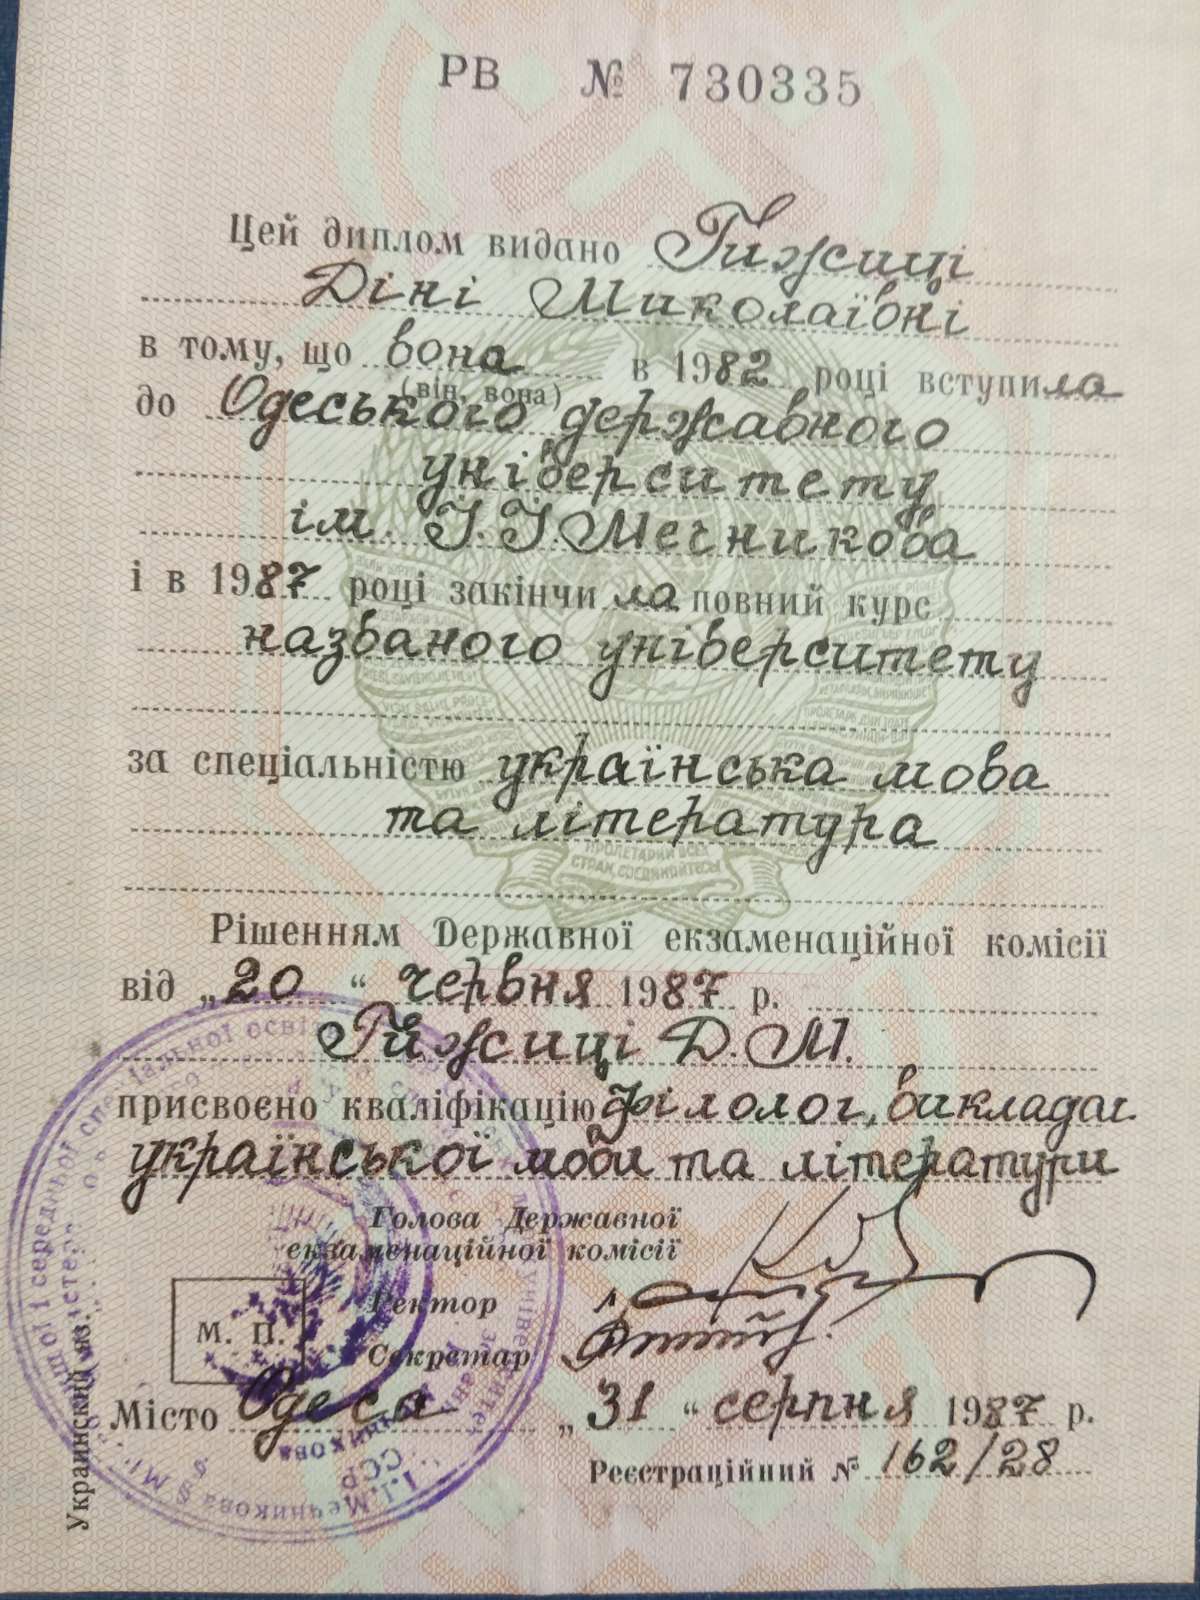 РВ № 730335
Цей диплом видано Гижиці
Діні Миколаївні
в тому, що вона в 1982 році вступила
(він, вона)
до Одеського державного
університету
ім. І.І.Мечникова
і в 1987 році закінчила повний курс
названого університету
за спеціальністю українська мова
та література
ПРОЛЕТАРИИ ВСЕХ
СТРАН, СОЕДИНЯЙТЕСЬ!
Рішенням Державної екзаменаційної комісії
від „20“ червня 1987 р.
Гижиці Д.М.
присвоєно кваліфікацію філолог, викладач
української мови та літератури
Голова Державної
екзаменаційної комісії
Ректор
М. П.
Секретар
Місто Одеса „31“ серпня 1987 р.
Реєстраційний № 162/28
Украинский яз.